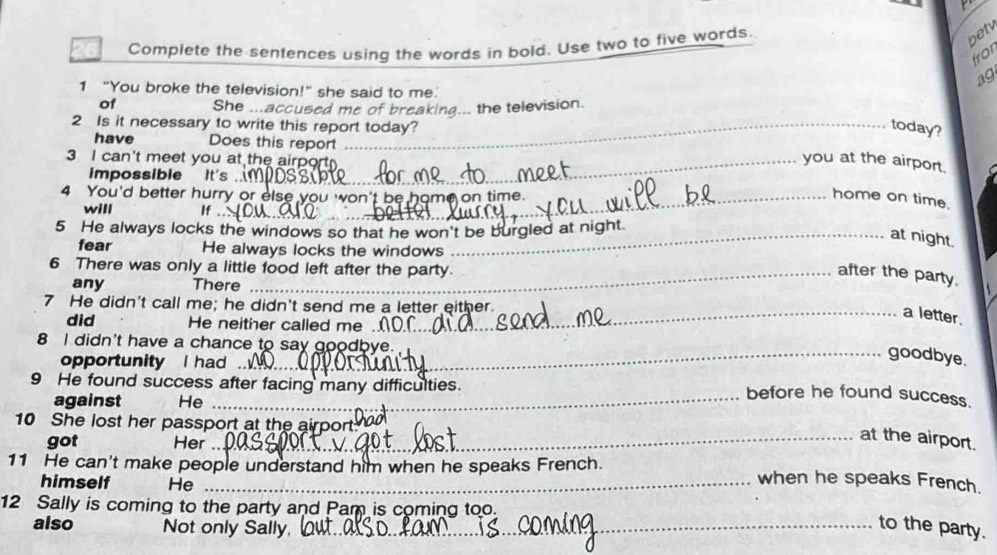 26 Complete the sentences using the words in bold. Use two to five words.
1 "You broke the television!" she said to me.
of She ...accused me of breaking... the television.
2 Is it necessary to write this report today?
have Does this report today?
3 I can't meet you at the airport.
impossible It's impossible for me to meet you at the airport.
4 You'd better hurry or else you won't be home on time.
will If you are better hurry, you will be home on time.
5 He always locks the windows so that he won't be burgled at night.
fear He always locks the windows at night.
6 There was only a little food left after the party.
any There after the party.
7 He didn't call me; he didn't send me a letter either.
did He neither called me nor did send me a letter.
8 I didn't have a chance to say goodbye.
opportunity I had no opportunity goodbye.
9 He found success after facing many difficulties.
against He before he found success.
10 She lost her passport at the airport.
had
got Her passport v got lost at the airport.
11 He can't make people understand him when he speaks French.
himself He when he speaks French.
12 Sally is coming to the party and Pam is coming too.
also Not only Sally, but also Pam is coming to the party.